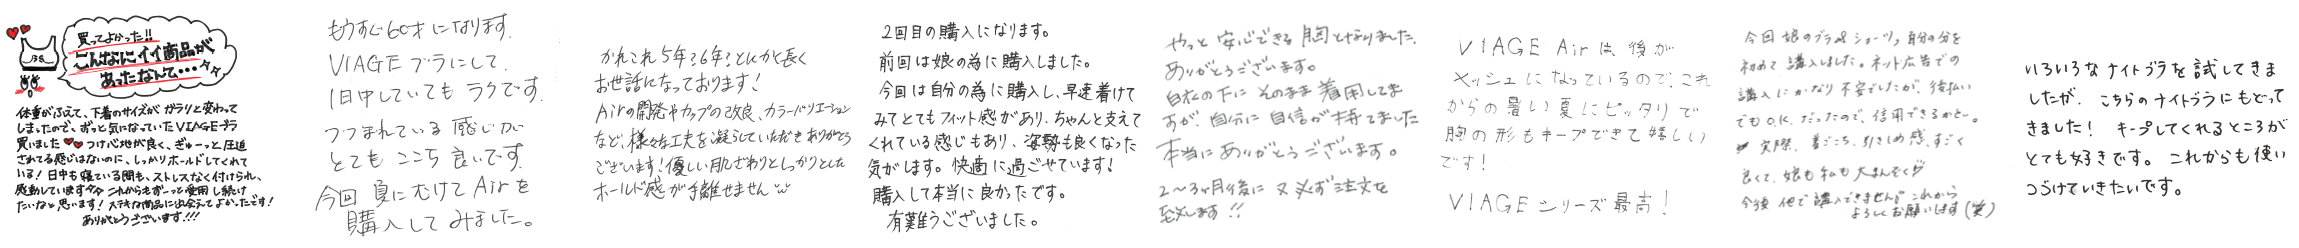 買ってよかった!!
こんなにイイ商品が
あったなんて…
体重がふえて、下着のサイズがガラリと変わって
しまったので、ずっと気になっていたVIAGEブラ
買いました♥♥つけ心地が良く、ぎゅーっと圧迫
されてる感じはないのに、しっかりホールドしてくれて
いる!日中も寝ている間も、ストレスなく付けられ、
感動しています☆☆これからもずーっと愛用し続け
たいなと思います!ステキな商品に出会えてよかったです!
ありがとうございます!!!
もうすぐ60才になります.
VIAGEブラにして、
1日中していてもラクです.
つつまれている感じがい
とてもここち良いです.
今回夏にむけてAirを
購入してみました。
かれこれ5年?6年?とにかく長く
お世話になっております!
Airの開発やカップの改良、カラーバリエーション
など、様々な工夫を凝らしていただきありがとう
ございます!優しい肌ざわりとしっかりとした
ホールド感が手離せません
2回目の購入になります。
前回は娘の為に購入しました。
今回は自分の為に購入し、早速着けて
みてとてもフィット感があり、ちゃんと支えて
くれている感じもあり、姿勢も良くなった
気がします。快適に過ごせています!
購入して本当に良かったです。
有難うございました。
やっと安心できる胸となりました.
ありがとうございます。
白私の下にそのまま着用してま
すが、自分に自信が持てました
本当にありがとうございます。
2〜3ヶ月後に又必ず注文を
致します!!
VIAGE Airは後が
メッシュになっているので、これ
からの暑い夏にピッタリで
胸の形もキープできて嬉しい
です!
VIAGEシリーズ最高!
今回娘のブラ&ショーツ、自分の分を
初めて購入しました。ネット広告での
購入にかなり不安でしたが、後払い
でもO.K.だったので、信用できるかと。
実際、着ごこち、引きしめ感、すごく
良くて、娘も私も大まんぞく
今後他で購入できません。これから
よろしくお願いします(笑)
いろいろなナイトブラを試してきま
したが、こちらのナイトブラにもどって
きました! キープしてくれるところが
とても好きです。これからも使い
つづけていきたいです。